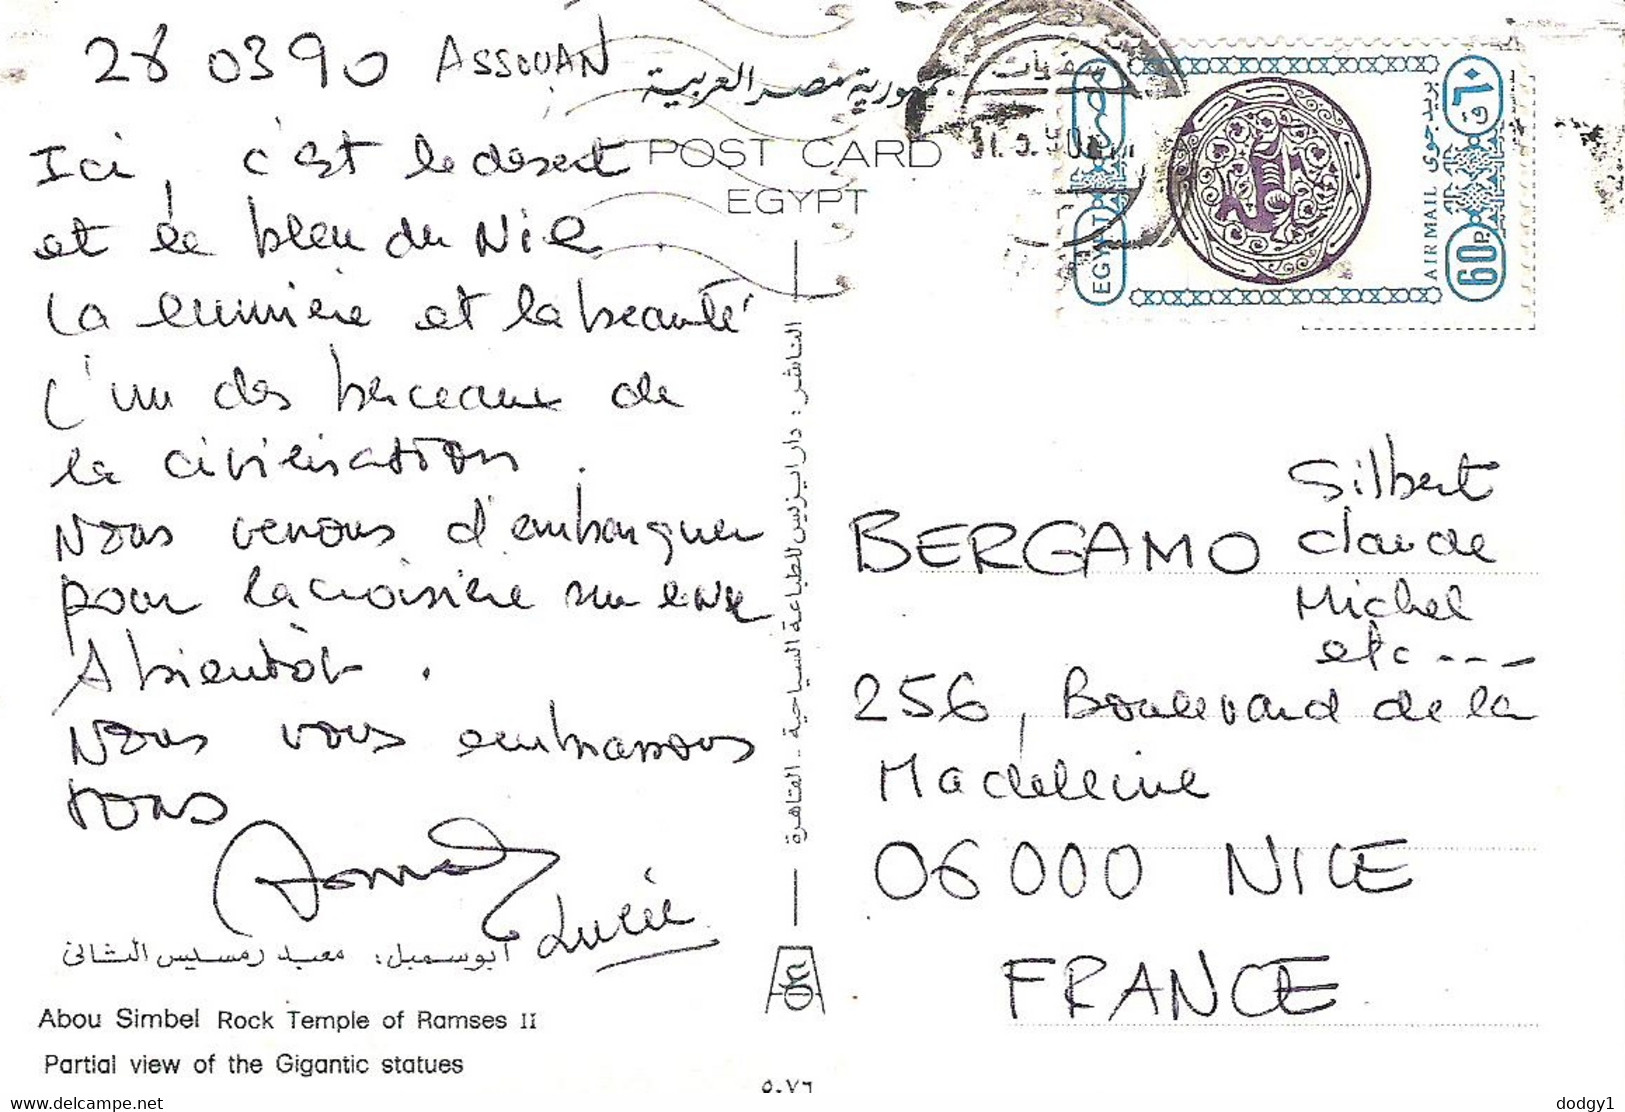 28 03 90 ASSOUAN
Ici, c'est le désert
et le bleu du Nil
La lumière et la beauté
L'un des berceaux de
la civilisation.
Nous venons d'embarquer
pour la croisière sur le Nil
A bientôt.
Nous vous embrassons
tous
Lucie
أبو سمبل: معبد رمسيس الثانى
Abou Simbel Rock Temple of Ramses II
Partial view of the Gigantic statues
جمهورية مصر العربية
POST CARD
EGYPT
الناشر: دار ايزيس للطباعة السياحية - القاهرة
٥٠٧٦
مصر
EGYPT
بريد جوى
AIR MAIL
٦٠ ق
60 P.
BERGAMO
Gilbert
Claude
Michel
etc---
256, Boulevard de la
Madeleine
06000 NICE
FRANCE
www.delcampe.net
dodgy1